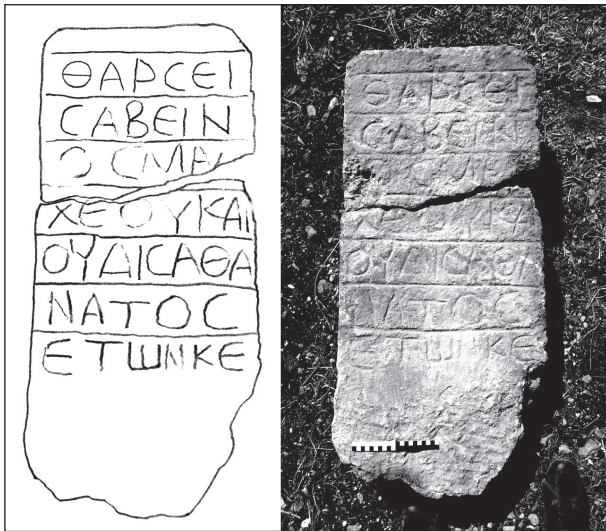 ΘΑΡϹΕΙ
ϹΑΒΕΙΝ
ΟϹΜΑΛ
ΧΕΟΥΚΑΙ
ΟΥΔΙϹΑΘΑ
ΝΑΤΟϹ
ΕΤΩΝΚΕ